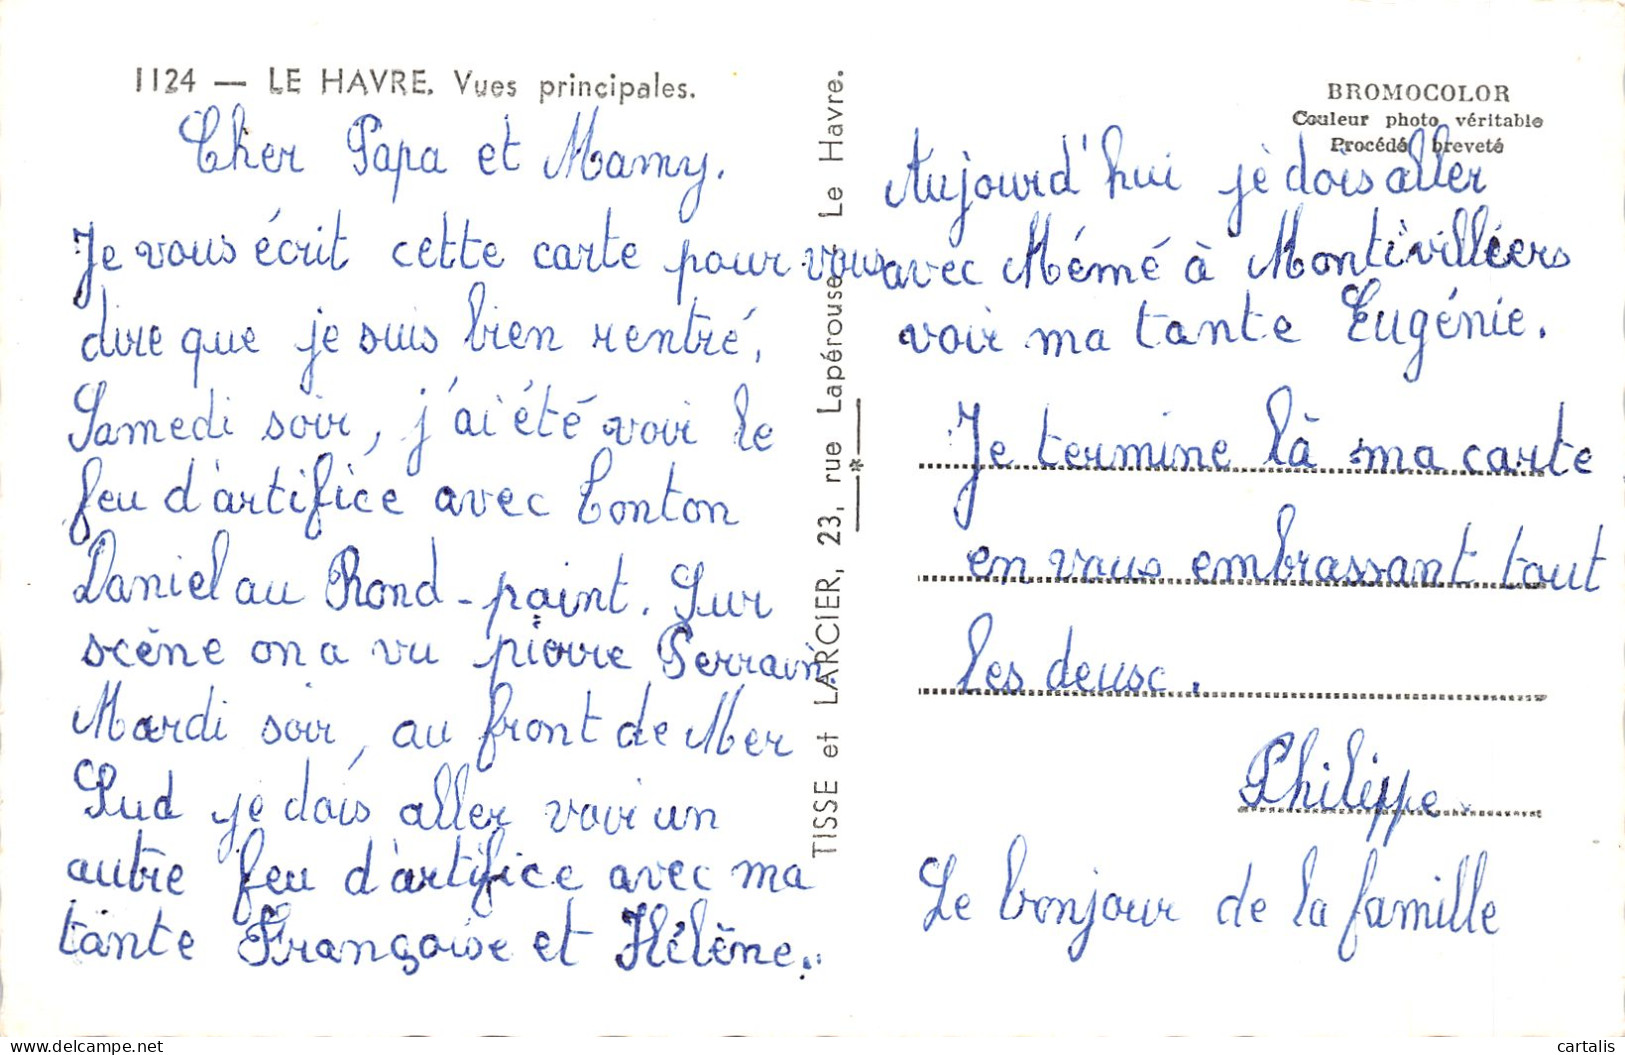 1124 — LE HAVRE. Vues principales.
Cher Papa et Mamy.
Je vous écrit cette carte pour vous
dire que je suis bien rentré.
Samedi soir, j'ai été voir le
feu d'artifice avec Tonton
Daniel au Rond-point. Sur
scène on a vu pierre Perrain
Mardi soir, au front de Mer
Sud je dois aller voir un
autre feu d'artifice avec ma
tante Françoise et Hélène.
TISSE et LARCIER, 23, rue Lapérouse - Le Havre.
BROMOCOLOR
Couleur photo véritable
Procédé breveté
Aujourd'hui je dois aller
avec Mémé à Montivilliers
voir ma tante Eugénie.
Je termine là ma carte
en vous embrassant tout
les deux.
Philippe
Le bonjour de la famille
cartalis